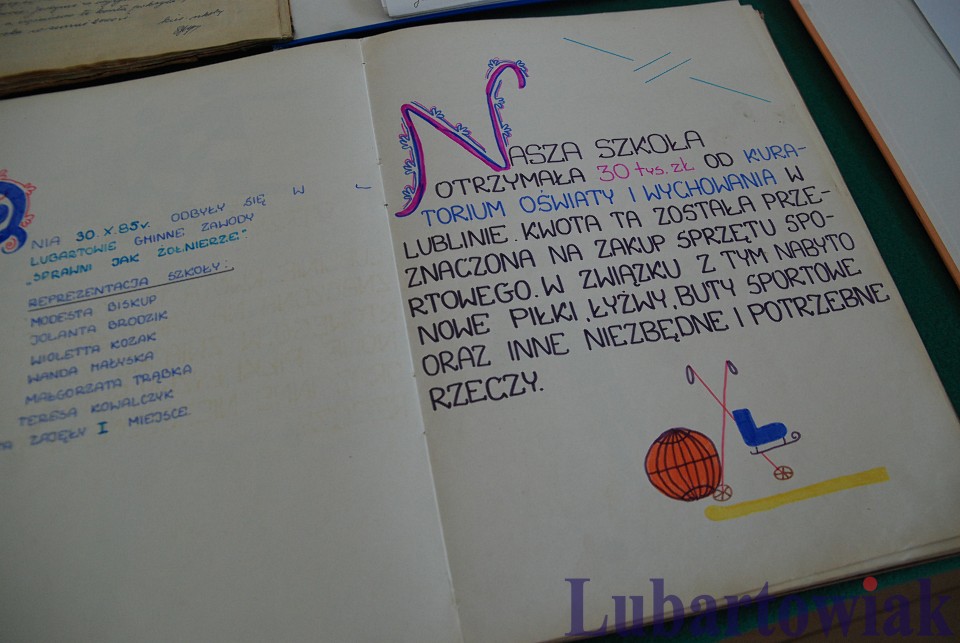 DNIA 30 X.85r. ODBYŁY SIĘ W
LUBARTOWIE GMINNE ZAWODY
„SPRAWNI JAK ŻOŁNIERZE".
REPREZENTACJA SZKOŁY:
MODESTA BISKUP
JOLANTA BRODZIK
WIOLETTA KOZAK
WANDA MAŁYSKA
MAŁGORZATA TRĄBKA
TERESA KOWALCZYK
ZAJĘŁY I MIEJSCE.
NASZA SZKOŁA
OTRZYMAŁA 30 tys. zł OD KURA-
TORIUM OŚWIATY I WYCHOWANIA W
LUBLINIE. KWOTA TA ZOSTAŁA PRZE-
ZNACZONA NA ZAKUP SPRZĘTU SPO-
RTOWEGO. W ZWIĄZKU Z TYM NABYTO
NOWE PIŁKI, ŁYŻWY, BUTY SPORTOWE
ORAZ INNE NIEZBĘDNE I POTRZEBNE
RZECZY.
Lubartowiak